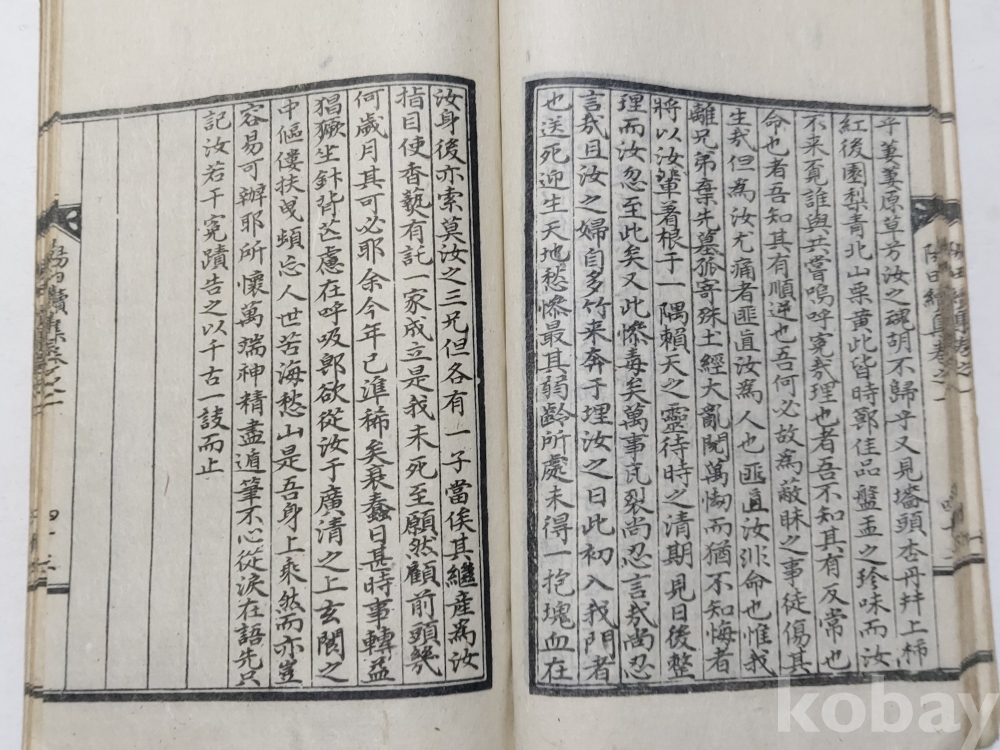 平萋萋原草芳汝之魂胡不歸乎又見墻頭杏丹井上柿
紅後園梨青北山栗黃此皆時鄕佳品盤盂之珍味而汝
不来覔誰與共嘗嗚呼寃㢤理也者吾不知其有反常也
命也者吾知其有順逆也吾何必故爲蔽昧之事徒傷其
生㢤但爲汝尤痛者匪直汝爲人也匪直汝非命也惟我
離兄弟棄先墓孤寄殊土經大亂閱萬㥘而猶不知悔者
將以汝輩着根于一隅賴天之靈待時之清期見日後整
理而汝忽至此矣又此慘毒矣萬事瓦裂尚忍言㢤尚忍
言㢤且汝之婦自多竹来奔于埋汝之日此初入我門者
也送死迎生天地愁慘最其弱齡所處未得一抱塊血在
汝身後亦索莫汝之三兄但各有一子當俟其繼產爲汝
指目使香藝有託一家成立是我未死至願然顧前頭幾
何歲月其可必耶余今年已準稀矣衰蠢日甚時事轉益
猖獗坐針背芒慮在呼吸卽欲從汝于廣清之上玄閣之
中傴僂扶曳頓忘人世苦海愁山是吾身上乘然而亦豈
容易可辦耶所懷萬端神精盡遁筆不心從淚在語先只
記汝若干寃蹟告之以千古一訣而止
四十二
kobay